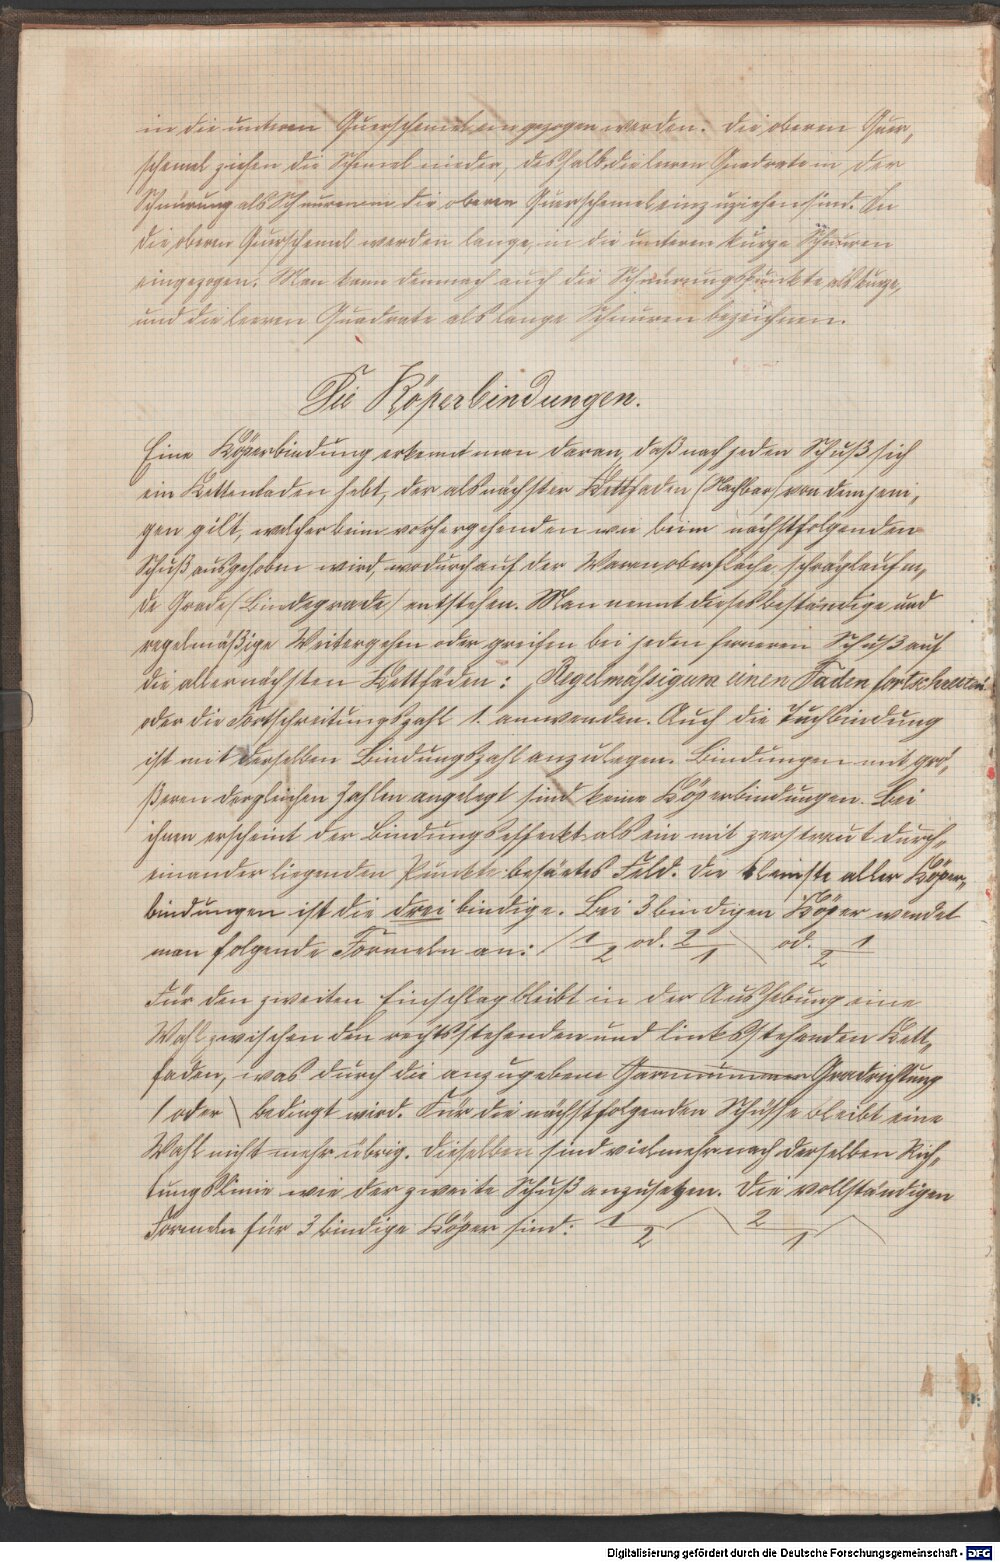 in die unteren Querschemel eingezogen werden. Die oberen Quer-
schemel ziehen die Schemel nieder, deshalb die leeren Quadrate in der
Schnürung als Schnuren in die oberen Querschemel einzuziehen sind. In
die oberen Querschemel werden lange, in die unteren kurze Schnuren
eingezogen. Man kann demnach auch die Schnürungspunkte als kurze,
und die leeren Quadrate als lange Schnuren bezeichnen.
Die Köperbindungen.
Eine Köperbindung erkennt man daran, daß nach jeden Schuß sich
ein Kettenfaden hebt, der als nächster Kettfaden (Nachbar) von demjeni-
gen gilt, welcher beim vorhergehenden wie beim nächstfolgenden
Schuß ausgehoben wird, wodurch auf der Warenoberfläche schräglaufen-
de Grade (Bindegrade) entstehen. Man nennt dieses beständige und
regelmäßige Weitergehen oder greifen bei jeden ferneren Schuß auf
die allernächsten Kettfäden: "Regelmässig um einen Faden fortschreiten"
oder die Fortschreitungszahl 1. anwenden. Auch die Tuchbindung
ist mit derselben Bindungszahl anzulegen. Bindungen mit grö-
ßeren dergleichen Zahlen angelegt sind keine Köperbindungen. Bei
ihnen erscheint der Bindungseffeckt als ein mit zerstreut durch-
einander liegenden Punkte besäetes Feld. Die kleinste aller Köper-
bindungen ist die dreibindige. Bei 3bindigen Köper wendet
man folgende Formeln an: / 1 2 od. 2 1 \ od. 2 1
Für den zweiten Einschlag bleibt in der Aushebung eine
Wahl zwischen den rechtsstehenden und linksstehenden Kett-
faden, was durch die anzugebene Garnnummer Gradrichtung
/ oder \ bedingt wird. Für die nächstfolgenden Schüsse bleibt eine
Wahl nicht mehr übrig. Dieselben sind vielmehr nach derselben Rich-
tungslinie wie der zweite Schuß anzusetzen. Die vollständigen
Formeln für 3 bindige Köper sind: 1 2 / \ 2 1 / \
Digitalisierung gefördert durch die Deutsche Forschungsgemeinschaft - DFG